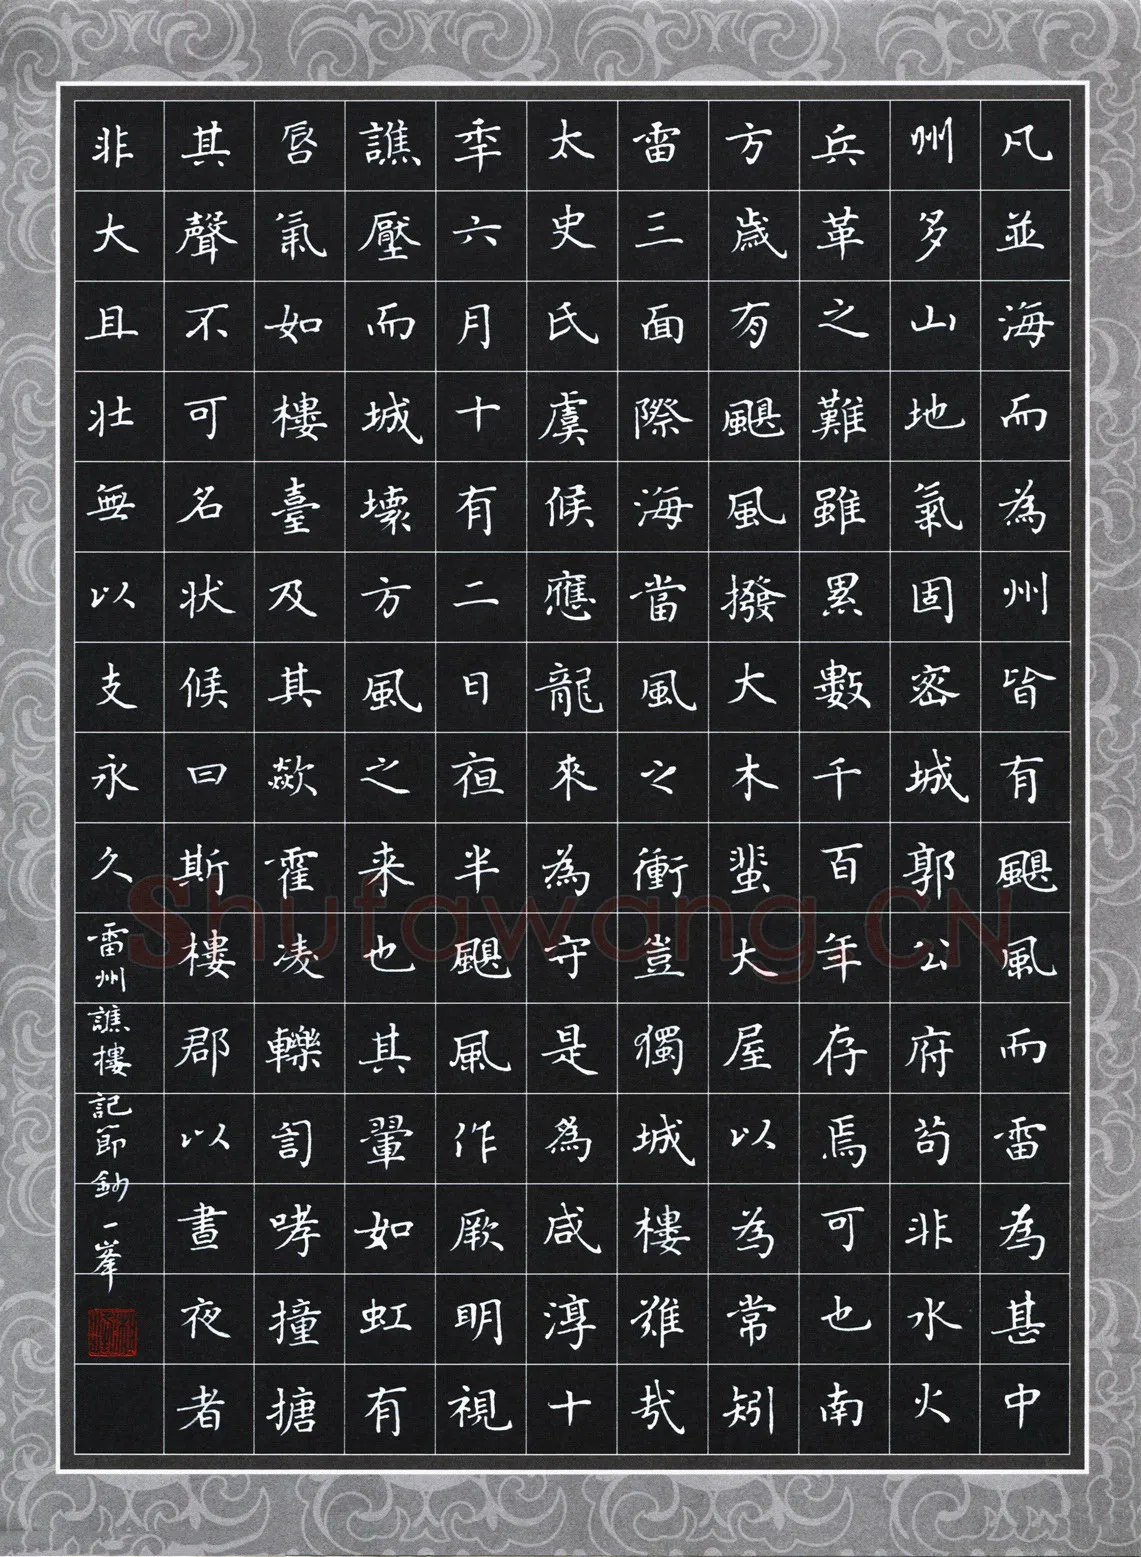 凡並海而為州皆有颶風而雷為甚中
州多山地氣固密城郭公府苟非水火
兵革之難雖累數千百年存焉可也南
方歲有颶風撥大木蜚大屋以為常矧
雷三面際海風當風之衝豈獨城樓難哉
太史氏虞候應龍來為守是為咸淳十
秊六月十有二日夜半颶風作厥明視
譙壓而城壞方風之来也其翬如虹有
唇氣如樓臺及其歘霍凌轢訇哮撞搪
其聲不可名状候曰斯樓郡以晝夜者
非大且壮無以支永久
雷州譙樓記節鈔一峯
Shufawang.CN